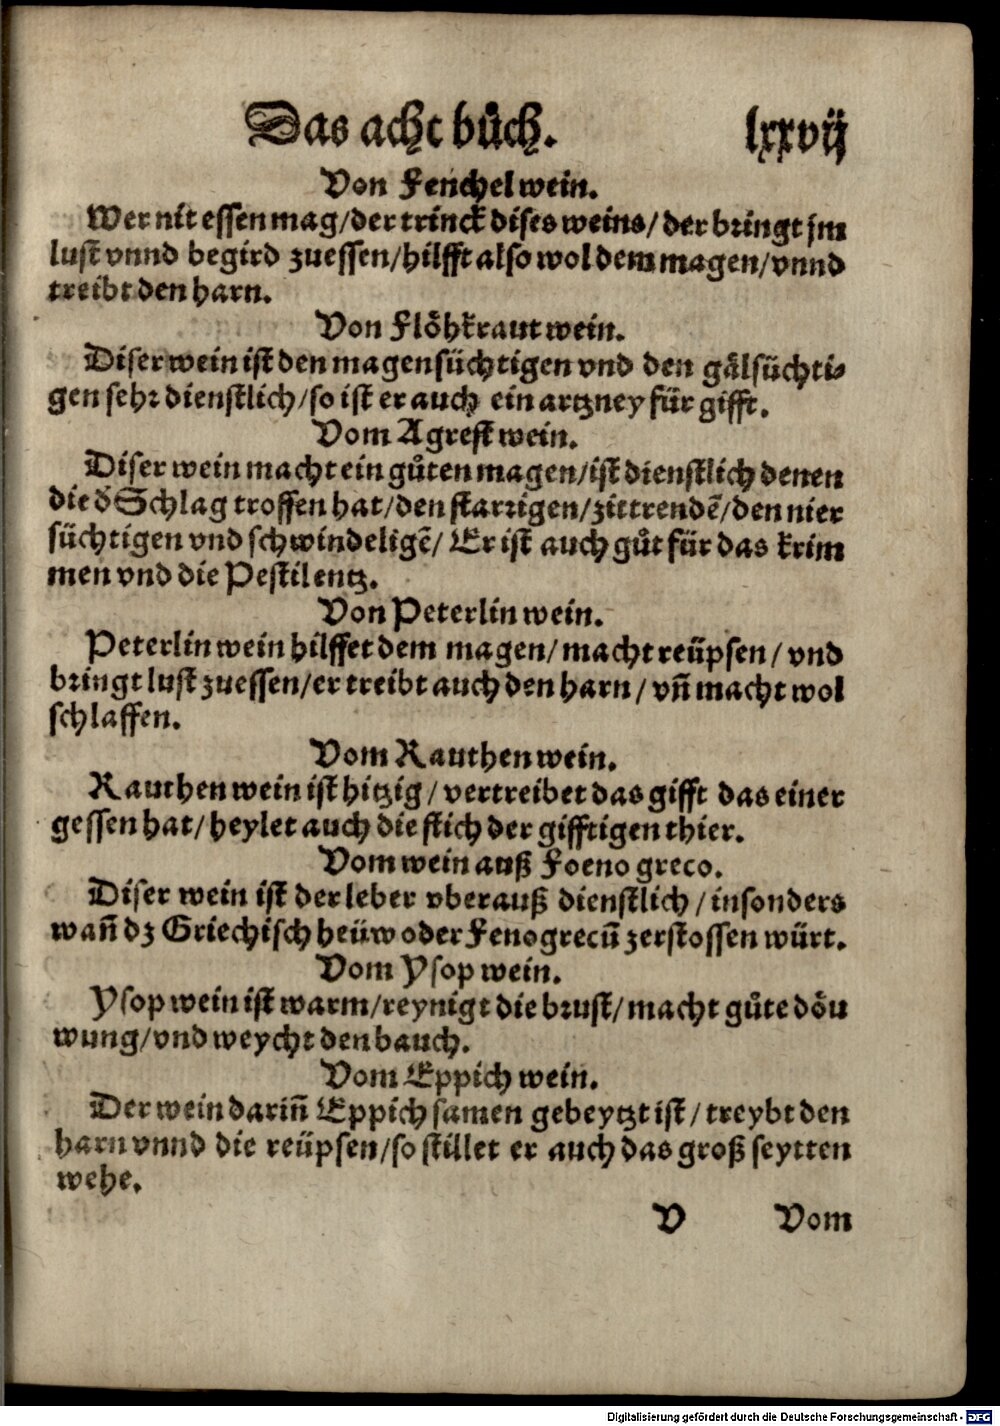 Das acht bůch. lxxvij
Von Fenchel wein.
Wer nit essen mag/der trinck dises weins/der bringt jm
lust vnnd begird zuessen/hilfft also wol dem magen/vnnd
treibt den harn.
Von Flöhkraut wein.
Diser wein ist den magensüchtigen vnd den gälsüchti-
gen sehr dienstlich/so ist er auch ein artzney für gifft.
Vom Agrest wein.
Diser wein macht ein gůten magen/ist dienstlich denen
die d̄ Schlag troffen hat/den starrigen/zittrendẽ/den nier
süchtigen vnd schwindeligẽ/ Er ist auch gůt für das krim
men vnd die Pestilentz.
Von Peterlin wein.
Peterlin wein hilffet dem magen/macht reüpsen/vnd
bringt lust zuessen/er treibt auch den harn/vñ macht wol
schlaffen.
Vom Rauthen wein.
Rauthen wein ist hitzig/vertreibet das gifft das einer
gessen hat/heylet auch die stich der gifftigen thier.
Vom wein auß Foeno greco.
Diser wein ist der leber vberauß dienstlich/insonders
wañ dz Griechisch heüw oder Fenogrecū zerstossen würt.
Vom Ysop wein.
Ysop wein ist warm/reynigt die brust/macht gůte döu
wung/vnd weycht den bauch.
Vom Eppich wein.
Der wein dariñ Eppich samen gebeytzt ist/treybt den
harn vnnd die reüpsen/so stillet er auch das groß seytten
wehe.
V Vom
Digitalisierung gefördert durch die Deutsche Forschungsgemeinschaft - DFG